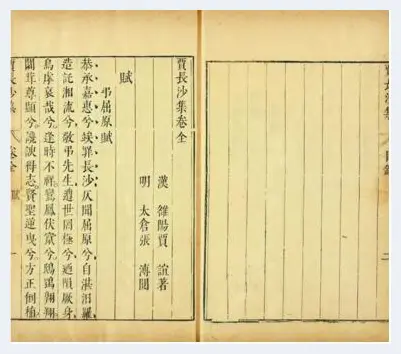 賈長沙集
目錄
二
賈長沙集卷全
漢 雒陽賈 誼著
明 太倉張 溥閱
賦
弔屈原賦
恭承嘉惠兮竢罪長沙仄聞屈原兮自湛汨羅
造託湘流兮敬弔先生遭世罔極兮迺隕厥身
烏虖哀哉兮逢時不祥鸞鳳伏竄兮鴟鴞翱翔
闒茸尊顯兮讒諛得志賢聖逆曳兮方正倒植
賈長沙集
卷全 賦
一